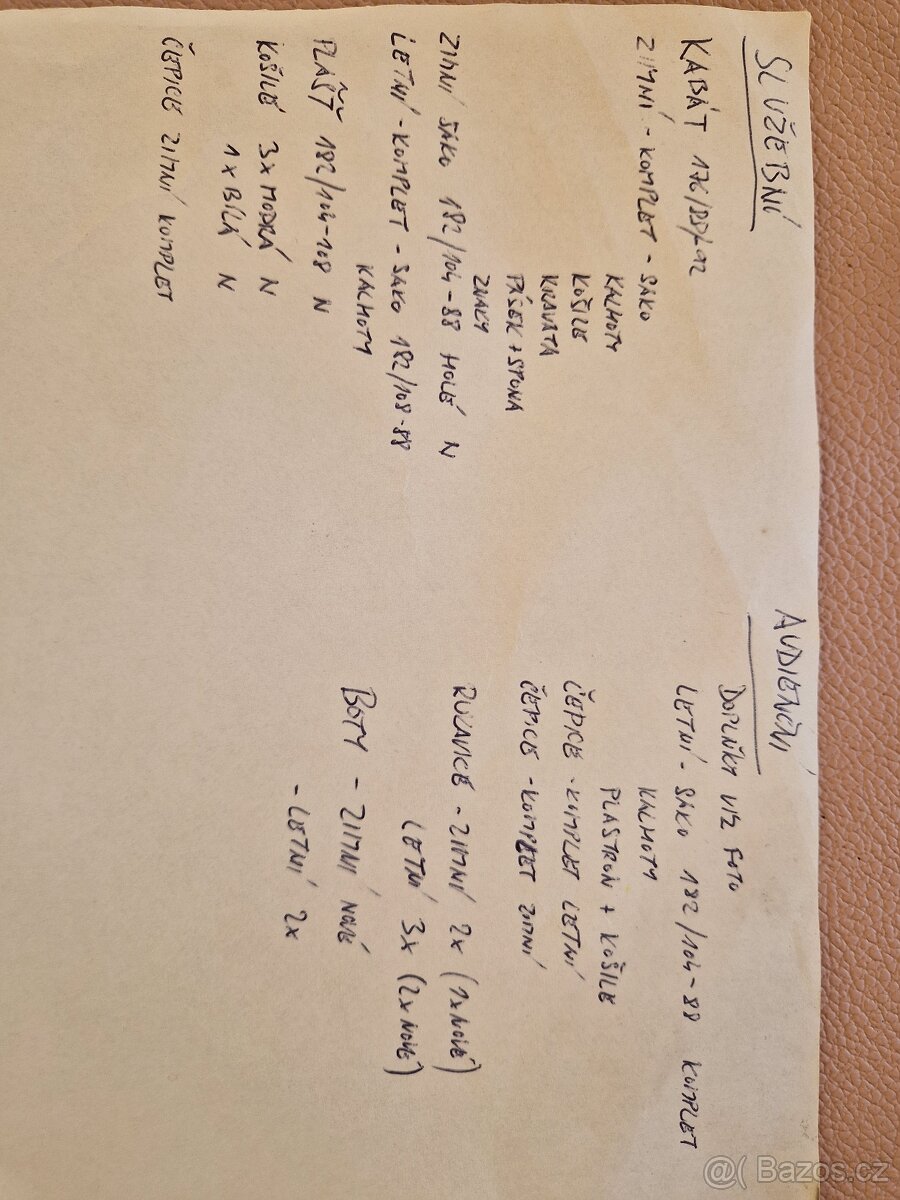 SLUŽEBNÍ
KABÁT 176/88-92
ZIMNÍ - KOMPLET - SAKO
KALHOTY
KOŠILE
KRAVATA
PÁSEK + SPONA
ZNAKY
ZIMNÍ SAKO 182/104-88 HOLÉ N
LETNÍ - KOMPLET - SAKO 182/108-88
KALHOTY
PLÁŠŤ 182/104-108 N
KOŠILE 3x MODRÁ N
1x BÍLÁ N
ČEPICE ZIMNÍ KOMPLET
AUDIENČNÍ
DOPLŇKY VIZ FOTO
LETNÍ - SAKO 182/104-88 KOMPLET
KALHOTY
PLASTRON + KOŠILE
ČEPICE - KOMPLET LETNÍ
ČEPICE - KOMPLET ZIMNÍ
RUKAVICE - ZIMNÍ 2x (1x NOVÉ)
LETNÍ 3x (2x NOVÉ)
BOTY - ZIMNÍ NOVÉ
- LETNÍ 2x
@( Bazos.cz